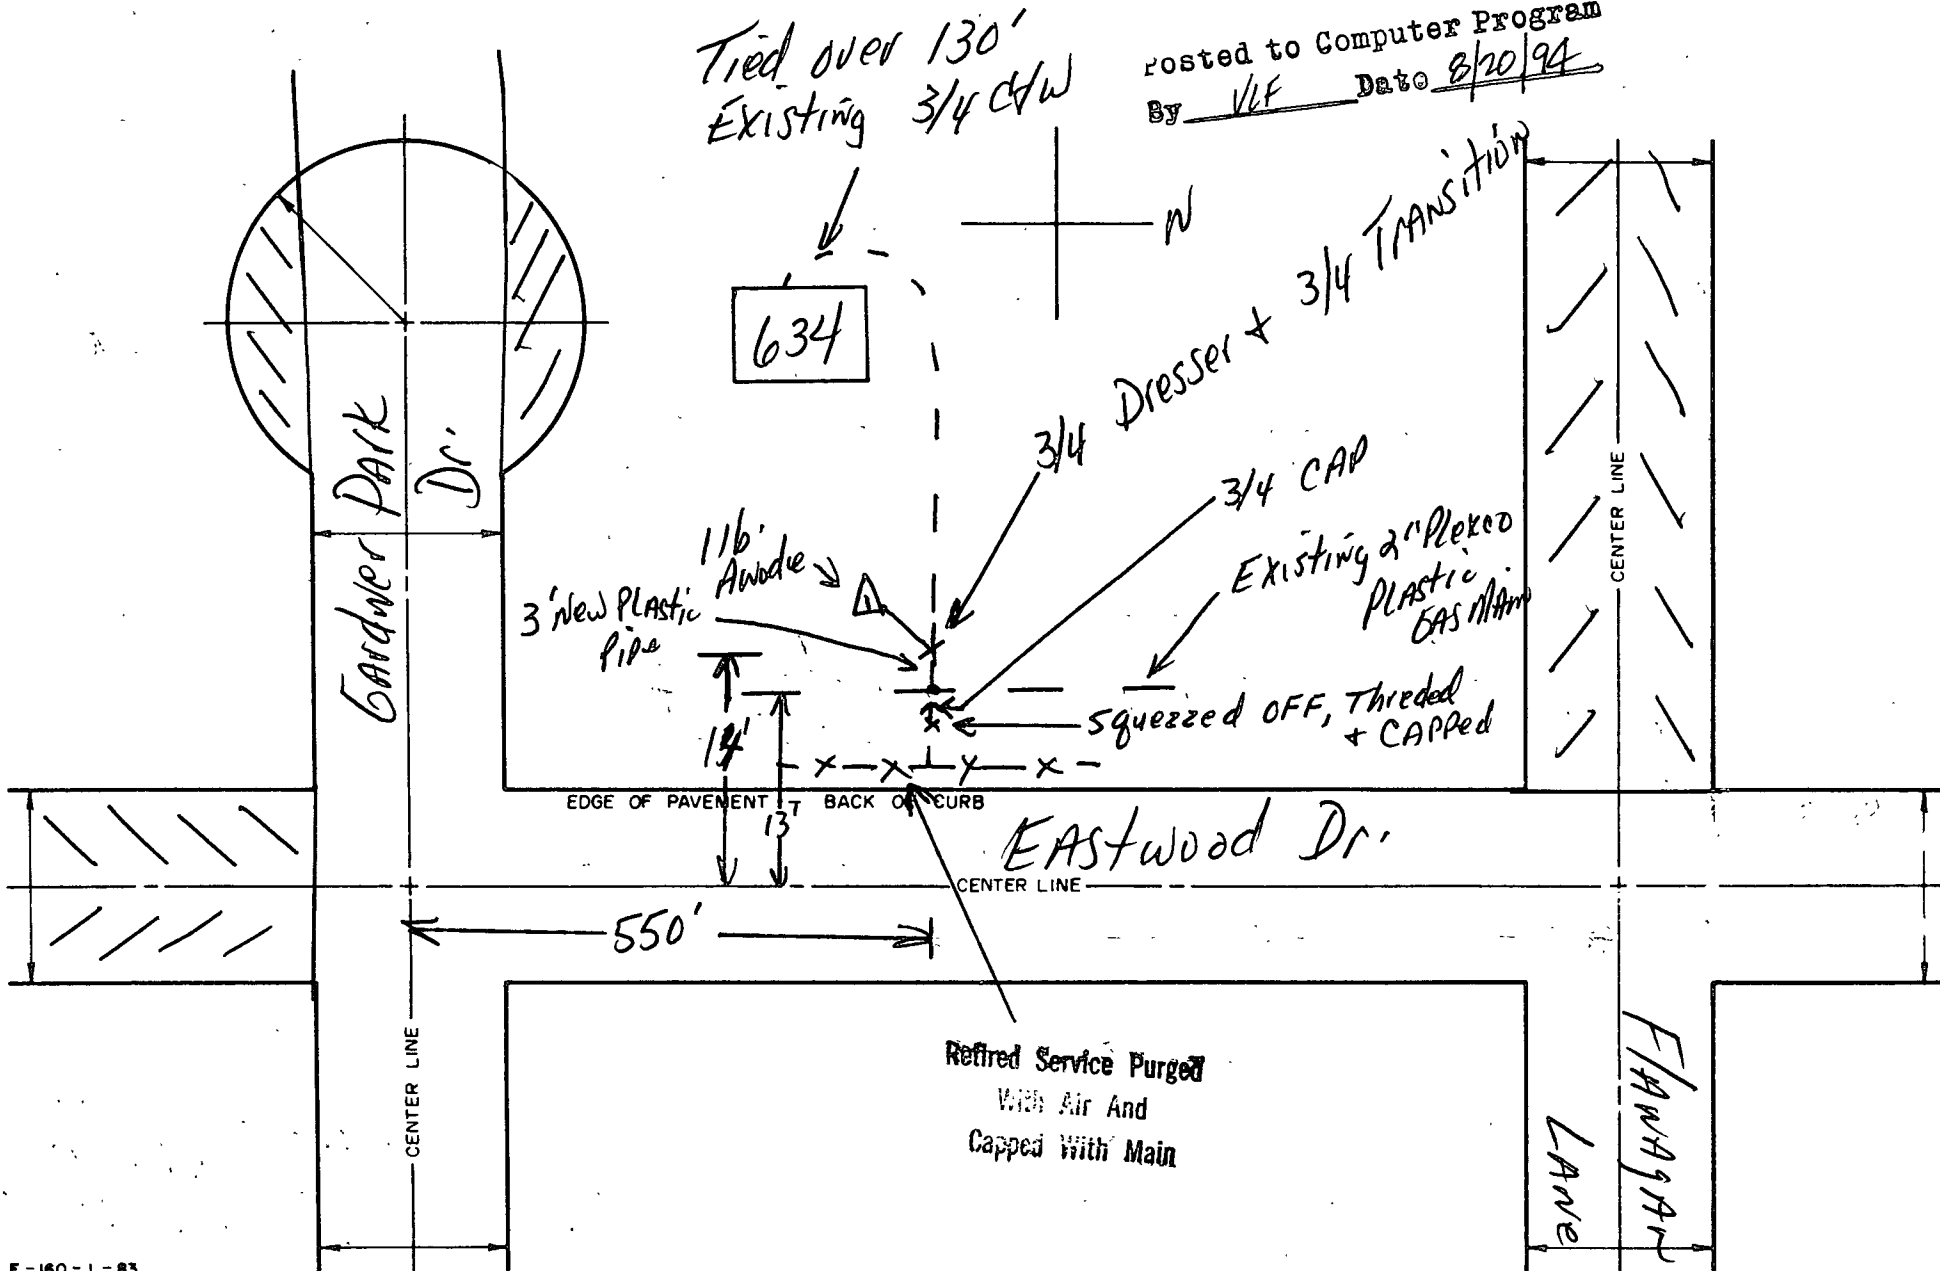 Tied over 130'
Existing 3/4 C/W
Posted to Computer Program
By VLF Date 8/20/94
N
634
3/4 Dresser + 3/4 TRANSITION
3/4 CAP
Existing 2" Plexco
Plastic
GAS MAin
1 lb'
Anode
1
3' New Plastic
Pipe
Gardner PARK
Dr.
squezzed OFF, Threded
+ CAPPed
14'
13'
EDGE OF PAVEMENT
BACK OF CURB
EAStwood Dr.
CENTER LINE
550'
CENTER LINE
CENTER LINE
Retired Service Purged
With Air And
Capped With Main
FlANAgAn
LANe
F-160-1-83